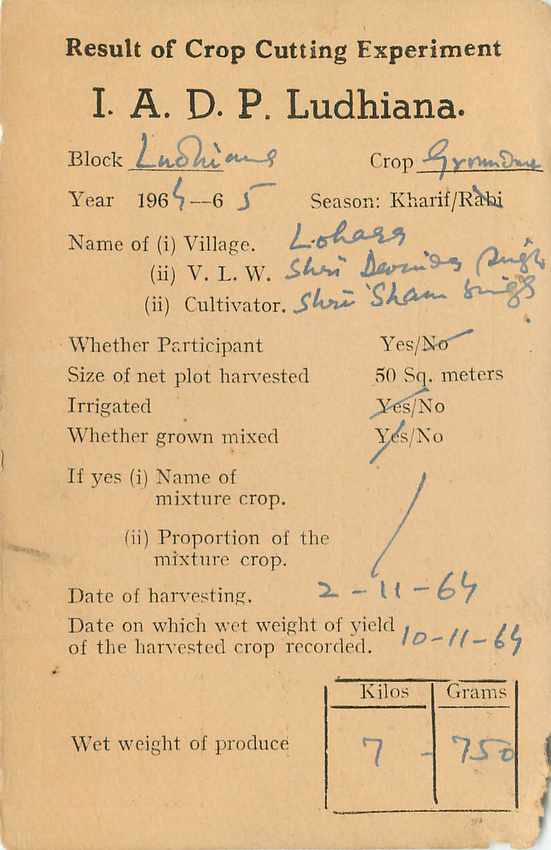 Result of Crop Cutting Experiment
I. A. D. P. Ludhiana.
Block Ludhiana Crop Groundnut
Year 1964—65 Season: Kharif/Rabi
Name of (i) Village. Lohara
(ii) V. L. W. Shri Devinder Singh
(ii) Cultivator. Shri Sham Singh
Whether Participant Yes/No
Size of net plot harvested 50 Sq. meters
Irrigated Yes/No
Whether grown mixed Yes/No
If yes (i) Name of
mixture crop.
(ii) Proportion of the
mixture crop.
Date of harvesting. 2-11-64
Date on which wet weight of yield
of the harvested crop recorded. 10-11-64
Kilos Grams
Wet weight of produce 7 - 750